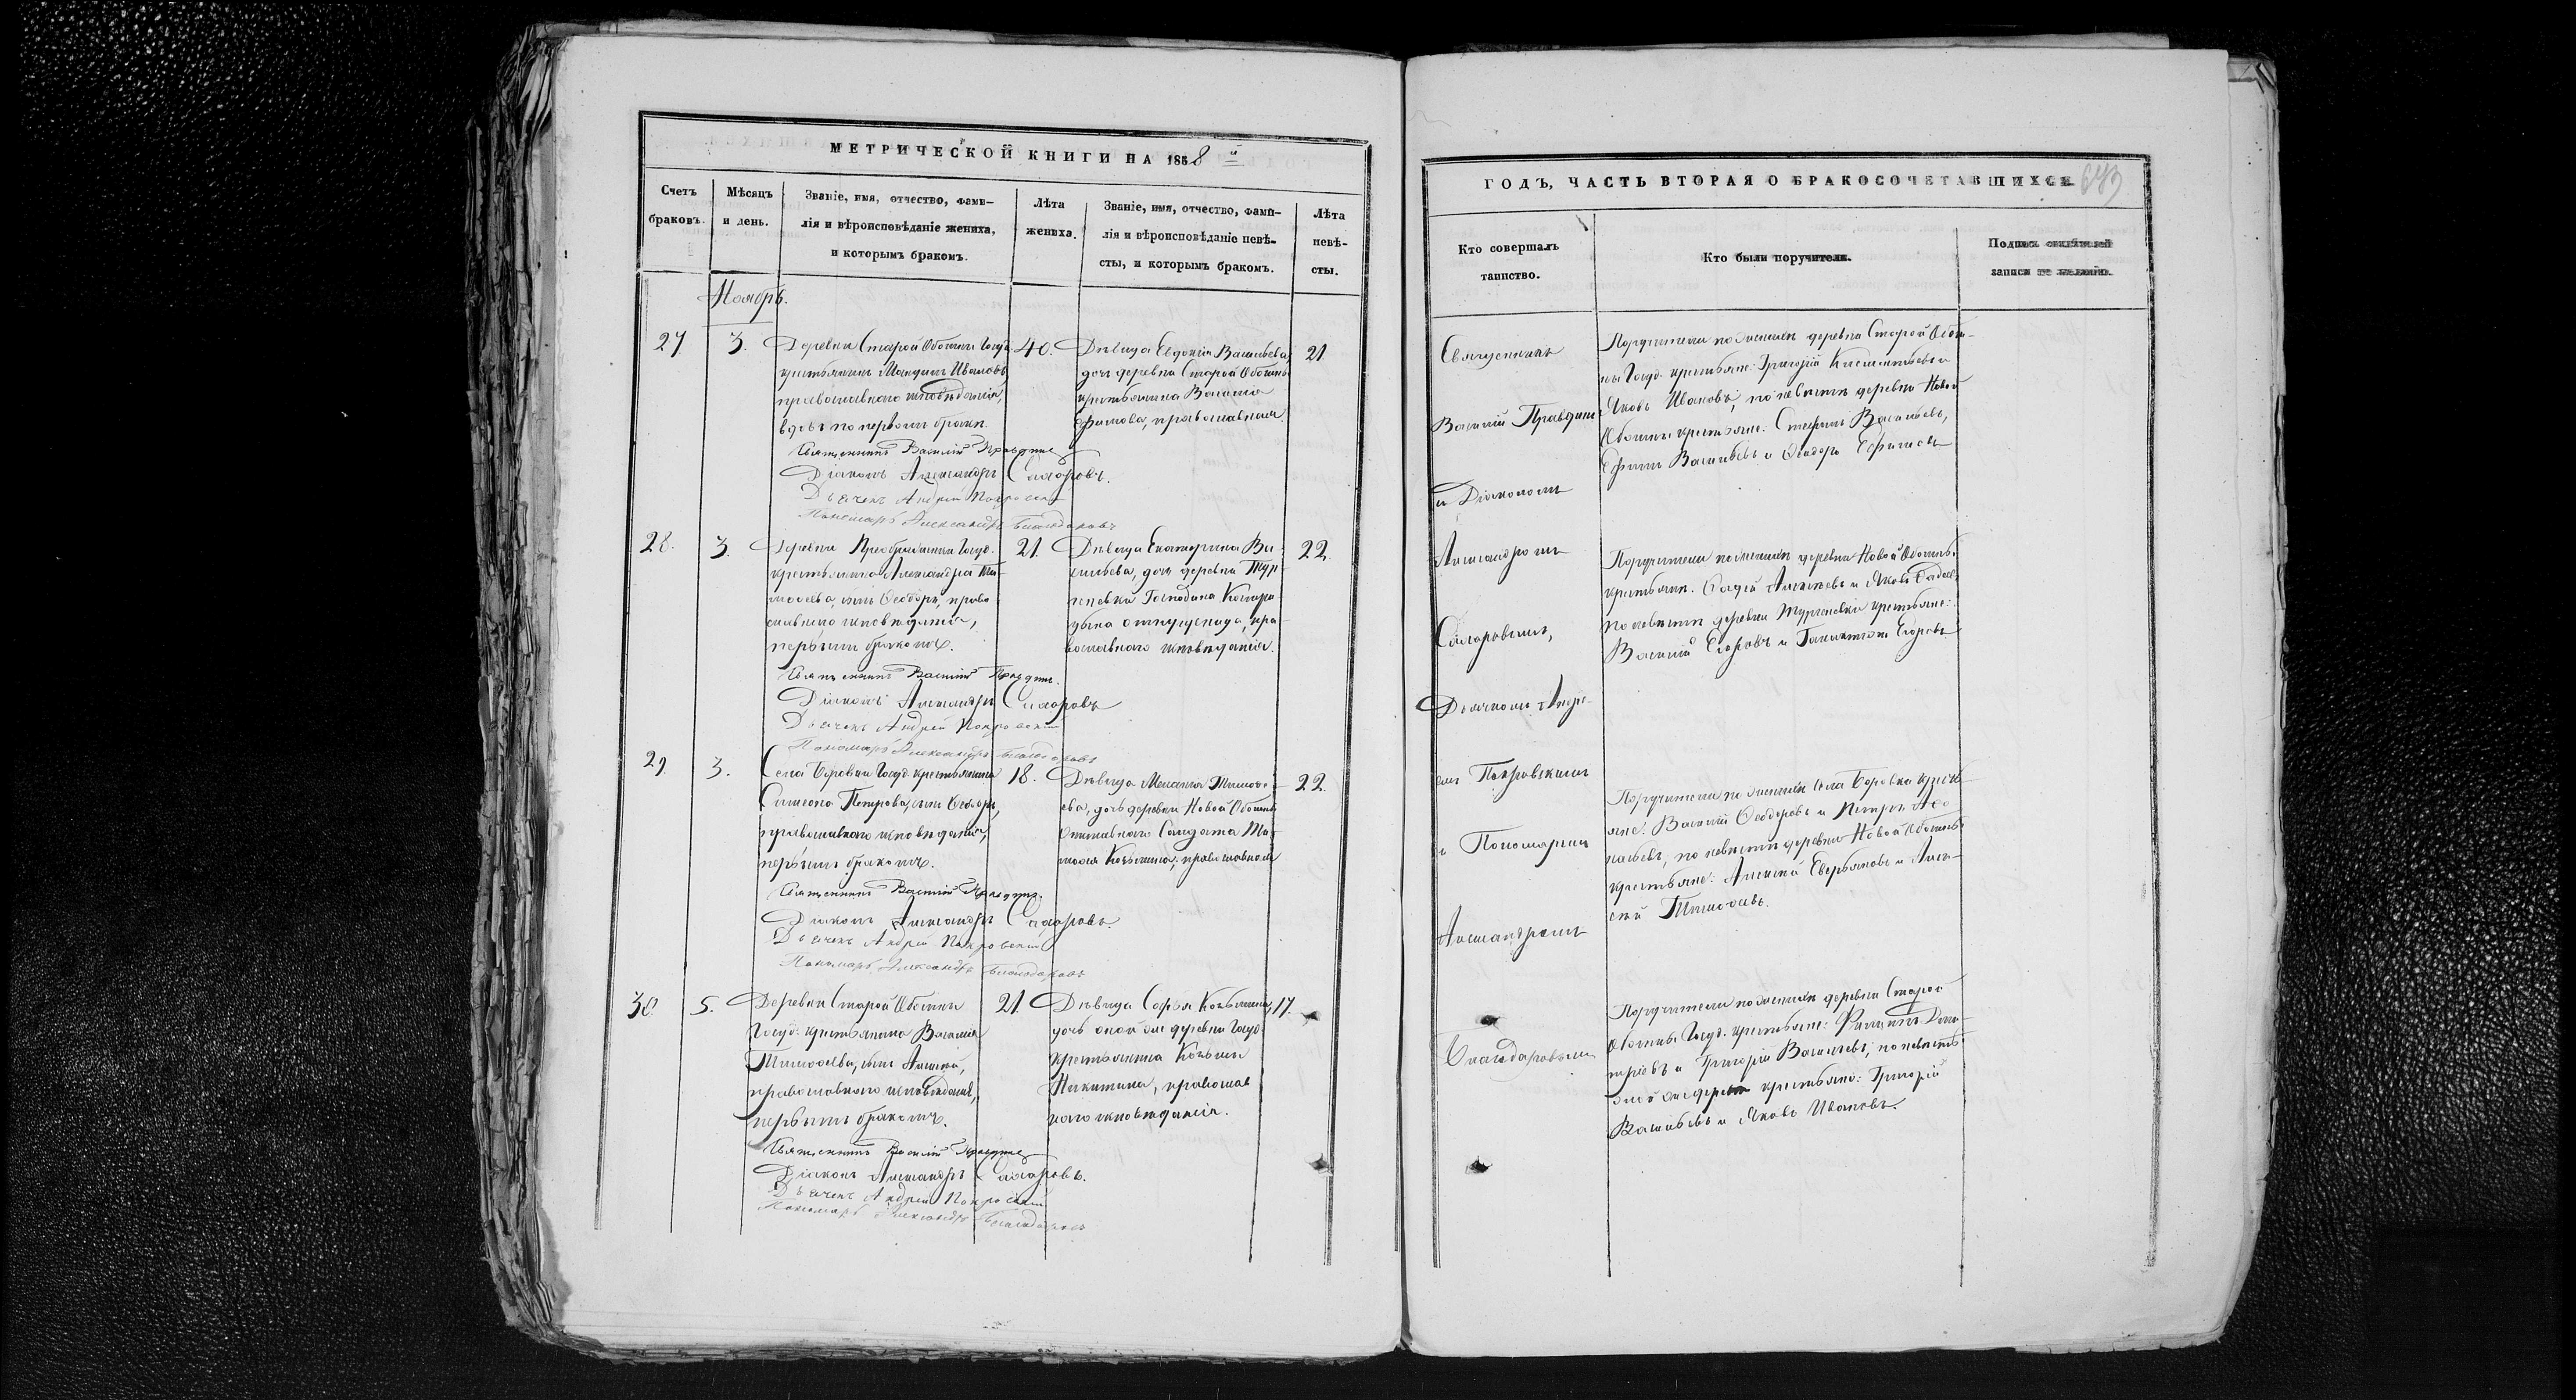 МЕТРИЧЕСКОЙ КНИГИ НА 1858 й
Счетъ браковъ.
Мѣсяцъ и день.
Званіе, имя, отчество, фами-
лія и вѣроисповѣданіе жениха,
и которымъ бракомъ.
Лѣта жениха.
Званіе, имя, отчество, фами-
лія и вѣроисповѣданіе невѣ-
сты, и которымъ бракомъ.
Лѣта невѣ-
сты.
Ноябрь.
27
3.
Деревни Старой
крестьянинъ Ивановъ
православнаго исповѣданія,
вдовъ по первомъ бракѣ.
40.
Дѣвица Евдокія Васильева,
дочь деревни Старой
крестьянина Василія
Ефимова, православная
21
Священникъ Василій Правдинъ
Діаконъ Александръ Сахаровъ.
Дьячекъ Андрей Покровскій
Пономарь Александръ Благодаровъ
28.
3.
Деревни Преображенки Госуд.
крестьянина Александра Ти-
моѳеева, сынъ Ѳеодоръ, право-
славнаго исповѣданія,
первымъ бракомъ.
21.
Дѣвица Екатерина Ва-
сильева, дочь деревни Тур-
геневки Господина
православнаго исповѣданія.
22.
Священникъ Василій Правдинъ.
Діаконъ Александръ Сахаровъ
Дьячекъ Андрей Покровскій
Пономарь Александръ Благодаровъ
29.
3.
Села Боровки Госуд. крестьянина
Симеона Петрова, сынъ Ѳеодоръ,
православнаго исповѣданія,
первымъ бракомъ.
18.
Дѣвица Меланія Тимоѳе-
ева, дочь деревни Новой
отставнаго Солдата Ти-
моѳея Козьмина, православнаго
22.
Священникъ Василій Правдинъ.
Діаконъ Александръ Сахаровъ.
Дьячекъ Андрей Покровскій
Пономарь Александръ Благодаровъ
30.
5.
Деревни Старой
Госуд. крестьянина Василія
Тимоѳеева, сынъ Алексѣй,
православнаго исповѣданія,
первымъ бракомъ.
21.
Дѣвица Софья Козьмина,
дочь оной же деревни Госуд.
крестьянина Козьмы
Никитина, православ
наго исповѣданія.
17.
Священникъ Василій Правдинъ
Діаконъ Александръ Сахаровъ.
Дьячекъ Андрей Покровскій
Пономарь Александръ Благодаровъ
ГОДЪ, ЧАСТЬ ВТОРАЯ О БРАКОСОЧЕТАВШИХСЯ
Кто совершалъ
таинство.
Кто были поручители.
Подпись свидѣтелей
записи по желанію.
Священникъ
Василій Правдинъ
и Діакономъ
Александромъ
Сахаровымъ,
Дьячкомъ Андре-
емъ Покровскимъ
и Пономаремъ
Александромъ
Благодаровымъ
Поручители по женихѣ деревни Старой
Госуд. крестьяне: Григорій и
Яковъ Ивановъ, по невѣстѣ деревни Новой
крестьяне: Стефанъ Васильевъ,
Ефимъ Васильевъ и Ѳеодоръ Ефимовъ
Поручители по женихѣ деревни Новой
крестьяне. и Яковъ
по невѣстѣ деревни Тургеневки крестьяне:
Василій Егоровъ и Егоровъ
Поручители по женихѣ села Боровки кресть
яне: Василій Ѳеодоровъ и Петръ Аѳа-
насьевъ, по невѣстѣ деревни Новой
крестьяне: Алексѣй и Алек-
сѣй Тимоѳеевъ.
Поручители по женихѣ деревни Старой
Госуд. крестьяне: Филиппъ Дми-
тріевъ и Григорій Васильевъ, по невѣстѣ
той же деревни крестьяне: Григорій
Васильевъ и Яковъ Ивановъ.